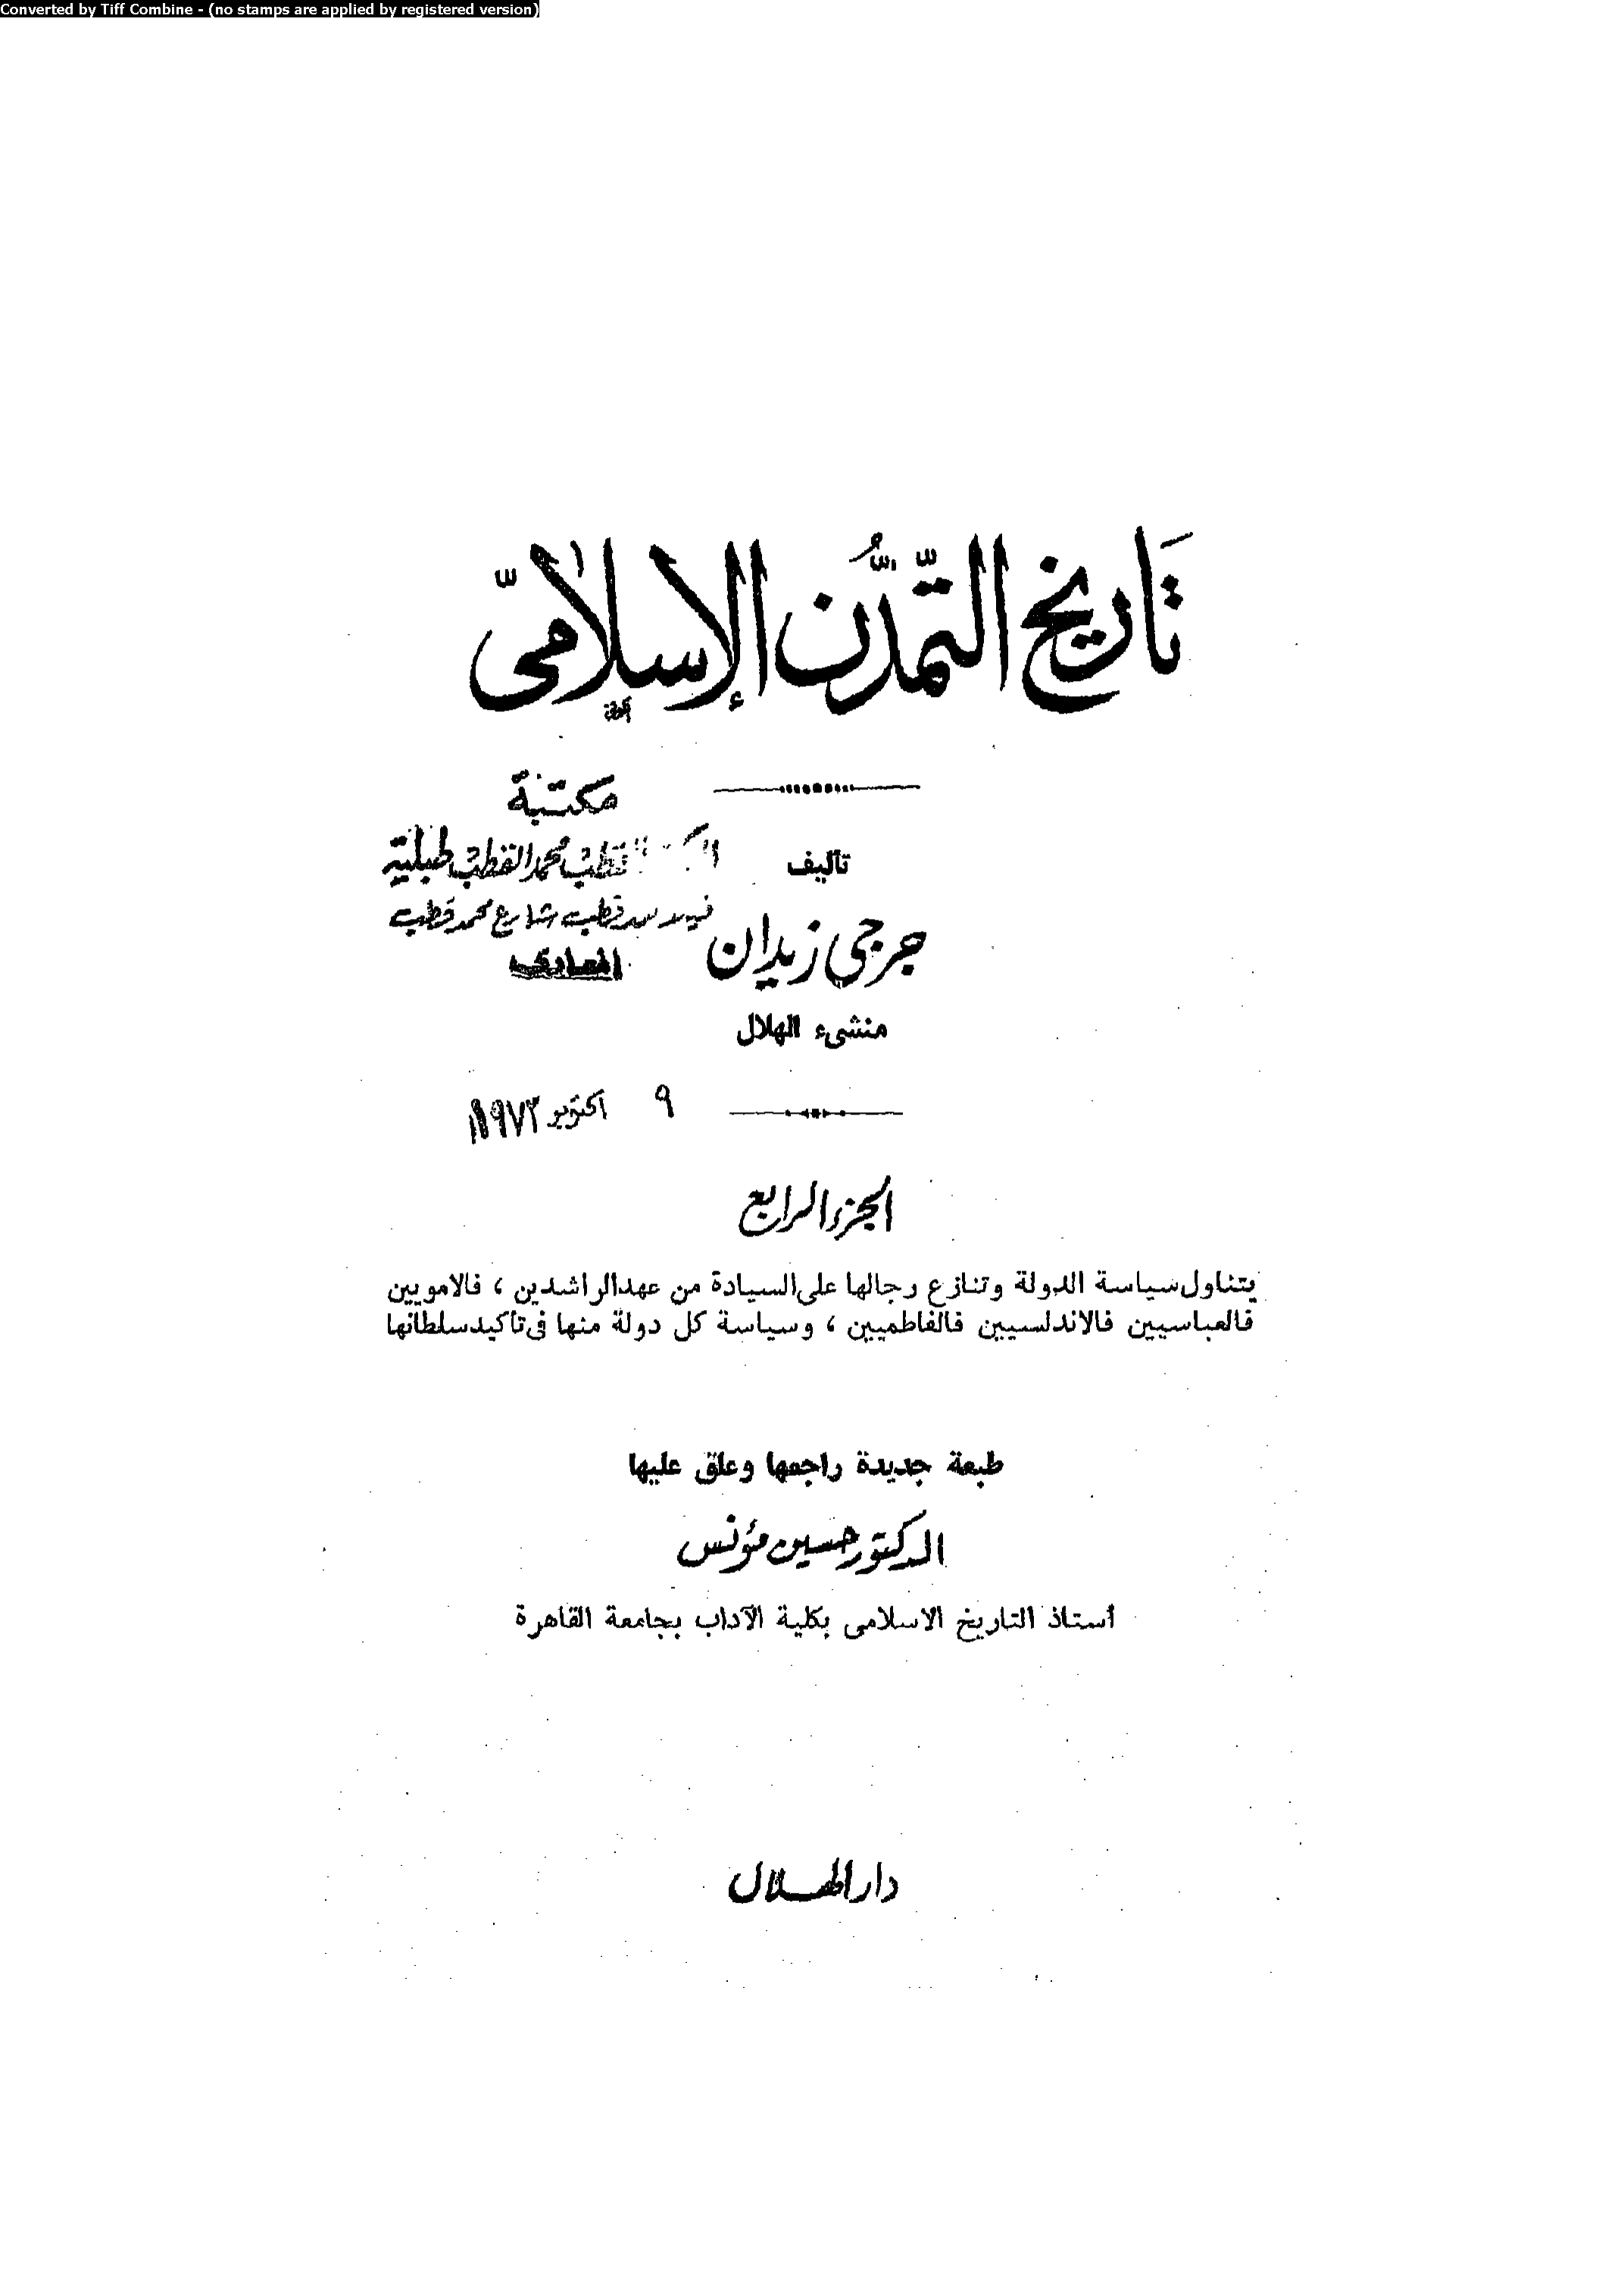 Converted by Tiff Combine - (no stamps are applied by registered version)
تَاريخ التّمدُّن الإسلامىّ
مكتبة
تأليف
قطب محمد القطب طبلية
قطب شارع محمد قطب
جرجى زيدان
المعادى
منشىء الهلال
٩ اكتوبر ١٩٧٣
الجزء الرابع
يتناول سياسة الدولة وتنازع رجالها على السيادة من عهد الراشدين ، فالامويين
فالعباسيين فالاندلسيين فالفاطميين ، وسياسة كل دولة منها فى تاكيد سلطانها
طبعة جديدة راجعها وعلق عليها
الدكتور حسين مؤنس
أستاذ التاريخ الاسلامى بكلية الآداب بجامعة القاهرة
دار الهلال